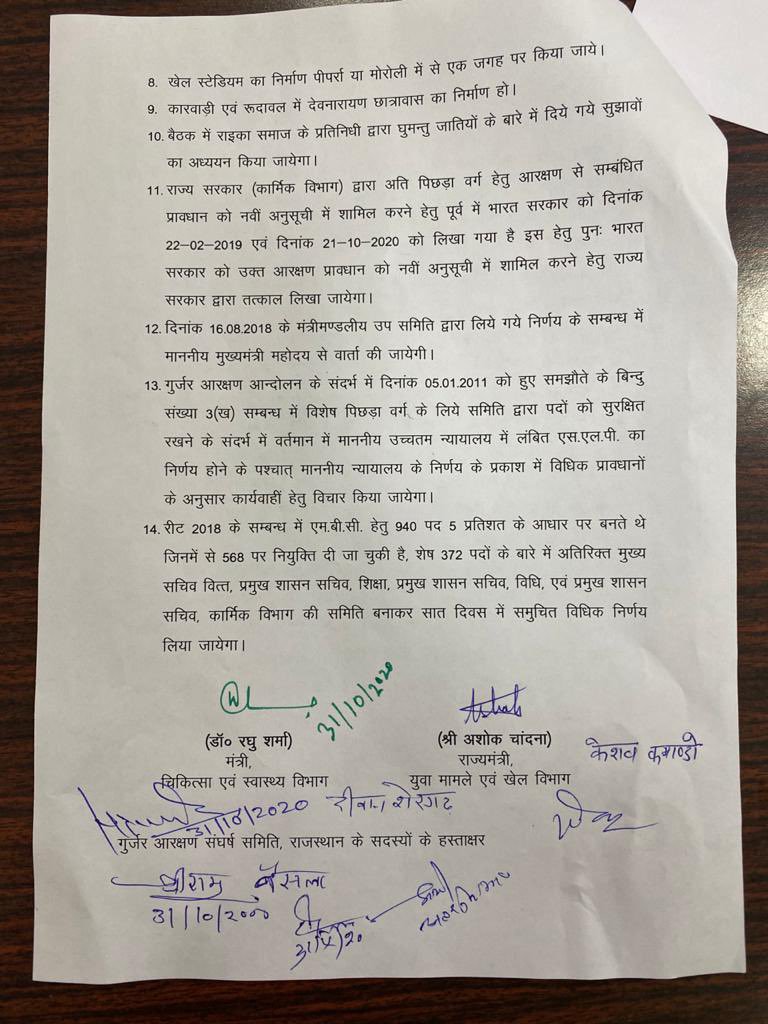 8. खेल स्टेडियम का निर्माण पीपर्रा या मोरोली में से एक जगह पर किया जाये।
9. कारवाड़ी एवं रूदावल में देवनारायण छात्रावास का निर्माण हो।
10. बैठक में राइका समाज के प्रतिनिधी द्वारा घुमन्तु जातियों के बारे में दिये गये सुझावों
का अध्ययन किया जायेगा।
11. राज्य सरकार (कार्मिक विभाग) द्वारा अति पिछड़ा वर्ग हेतु आरक्षण से सम्बंधित
प्रावधान को नवीं अनुसूची में शामिल करने हेतु पूर्व में भारत सरकार को दिनांक
22–02–2019 एवं दिनांक 21–10–2020 को लिखा गया है इस हेतु पुनः भारत
सरकार को उक्त आरक्षण प्रावधान को नवीं अनुसूची में शामिल करने हेतु राज्य
सरकार द्वारा तत्काल लिखा जायेगा।
12. दिनांक 16.08.2018 के मंत्रीमण्डलीय उप समिति द्वारा लिये गये निर्णय के सम्बन्ध में
माननीय मुख्यमंत्री महोदय से वार्ता की जायेगी।
13. गुर्जर आरक्षण आन्दोलन के संदर्भ में दिनांक 05.01.2011 को हुए समझौते के बिन्दु
संख्या 3(ख) सम्बन्ध में विशेष पिछड़ा वर्ग के लिये समिति द्वारा पदों को सुरक्षित
रखने के संदर्भ में वर्तमान में माननीय उच्चतम न्यायालय में लंबित एस.एल.पी. का
निर्णय होने के पश्चात् माननीय न्यायालय के निर्णय के प्रकाश में विधिक प्रावधानों
के अनुसार कार्यवाहीं हेतु विचार किया जायेगा।
14. रीट 2018 के सम्बन्ध में एम.बी.सी. हेतु 940 पद 5 प्रतिशत के आधार पर बनते थे
जिनमें से 568 पर नियुक्ति दी जा चुकी है, शेष 372 पदों के बारे में अतिरिक्त मुख्य
सचिव वित्त, प्रमुख शासन सचिव, शिक्षा, प्रमुख शासन सचिव, विधि, एवं प्रमुख शासन
सचिव, कार्मिक विभाग की समिति बनाकर सात दिवस में समुचित विधिक निर्णय
लिया जायेगा।
31/10/2020
(डॉ० रघु शर्मा) (श्री अशोक चांदना)
मंत्री, राज्यमंत्री,
चिकित्सा एवं स्वास्थ्य विभाग युवा मामले एवं खेल विभाग
केशव कमाण्डो
31/10/2020 दीवान शेरगढ़
गुर्जर आरक्षण संघर्ष समिति, राजस्थान के सदस्यों के हस्ताक्षर
श्रीराम बैंसला
31/10/2020